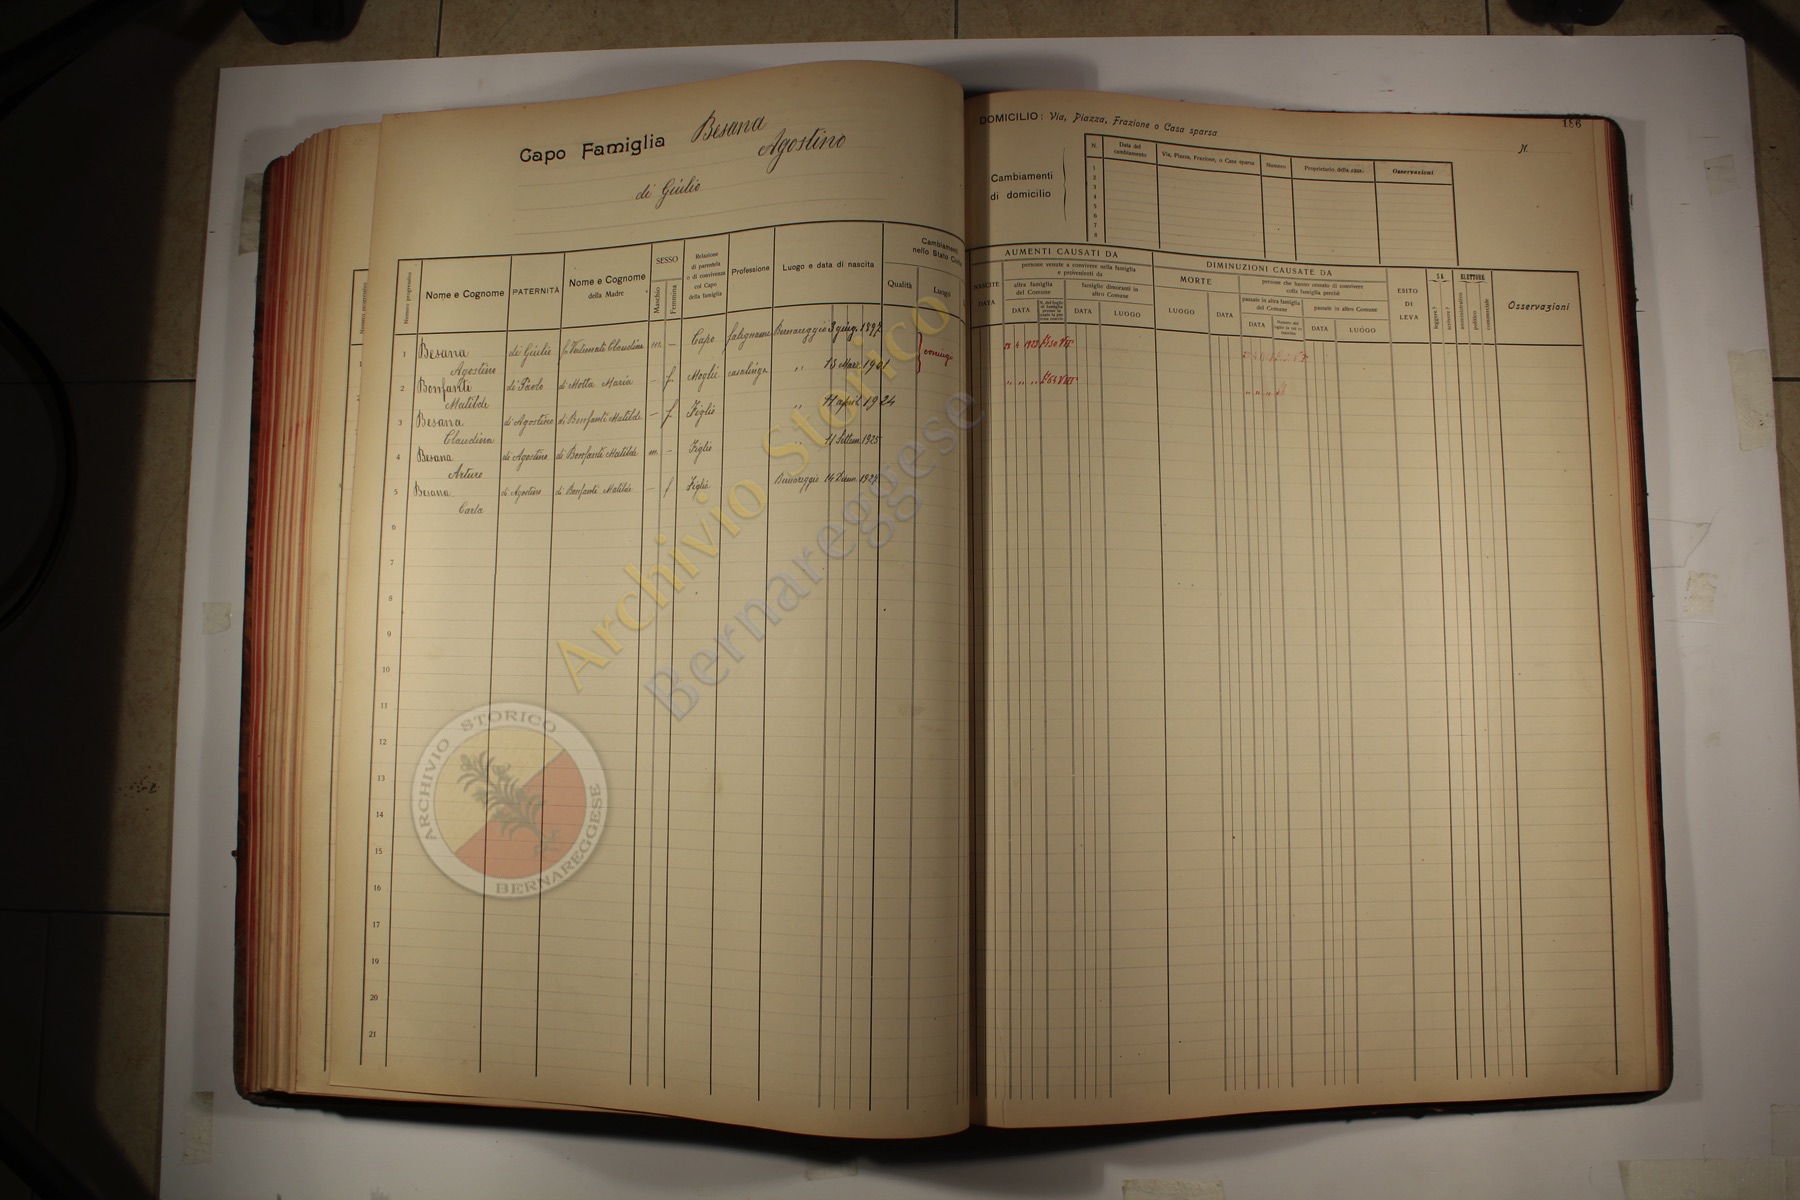 Capo Famiglia Besana
Agostino
di Giulio
DOMICILIO: Via, Piazza, Frazione o Casa sparsa
186
N.
Cambiamenti
di domicilio
N. Data del cambiamento Via, Piazza, Frazione, o Casa sparsa Numero Proprietario della casa Osservazioni
1
2
3
4
5
6
7
8
Numero progressivo
Numero progressivo
Nome e Cognome
PATERNITÀ
Nome e Cognome
della Madre
SESSO
Maschio
Femmina
Relazione
di parentela
o di convivenza
col Capo
della famiglia
Professione
Luogo e data di nascita
Cambiamenti
nello Stato Civile
Qualità
Luogo
AUMENTI CAUSATI DA
NASCITE
DATA
persone venute a convivere nella famiglia
e provenienti da
altra famiglia
del Comune
famiglie dimoranti in
altro Comune
DATA
DATA
LUOGO
DIMINUZIONI CAUSATE DA
MORTE
LUOGO
DATA
persone che hanno cessato di convivere
colla famiglia perchè
passate in altra famiglia
del Comune
passate in altro Comune
DATA
DATA
LUOGO
ESITO
DI
LEVA
SA
leggere?
scrivere?
ELETTORE
amministrativo
politico
commerciale
Osservazioni
1 Besana di Giulio Claudina m. – Capo falegname Bernareggio 3 giug. 1897
Agostino
coniugi
2 Bonfanti di Paolo di Motta Maria – f. Moglie casalinga " 13 Marz. 1901
Matilde
3 Besana di Agostino di Bonfanti Matilde – f Figlia " 11 april. 1924
Claudina
4 Besana di Agostino di Bonfanti Matilde m. – Figlio " 11 Settem. 1925
Arturo
5 Besana di Agostino di Bonfanti Matilde – f Figlia Bernareggio 14
Carla
6
7
8
9
10
11
12
13
14
15
16
17
18
19
20
21
Archivio Storico
Bernareggese
ARCHIVIO STORICO
BERNAREGGESE